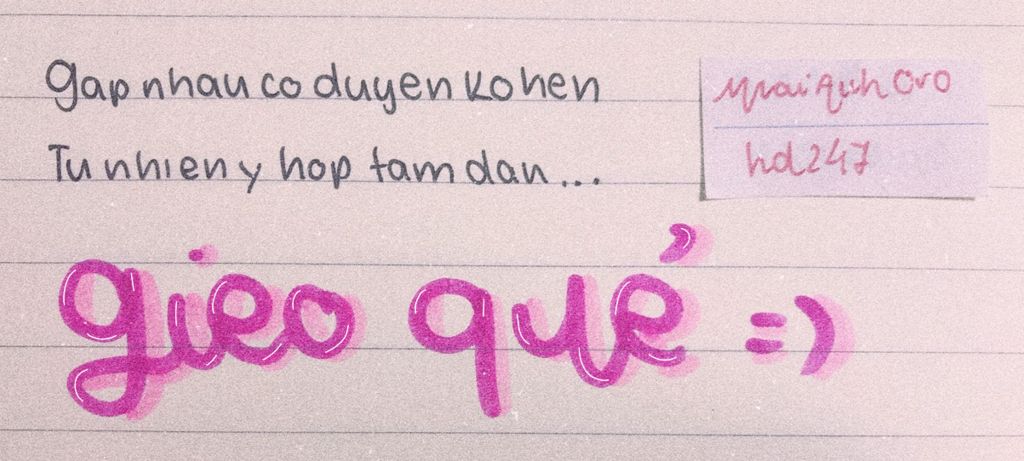 gap nhau co duyen ko hen
Tu nhien y hop tam dan...
gieo qué =)
hd247